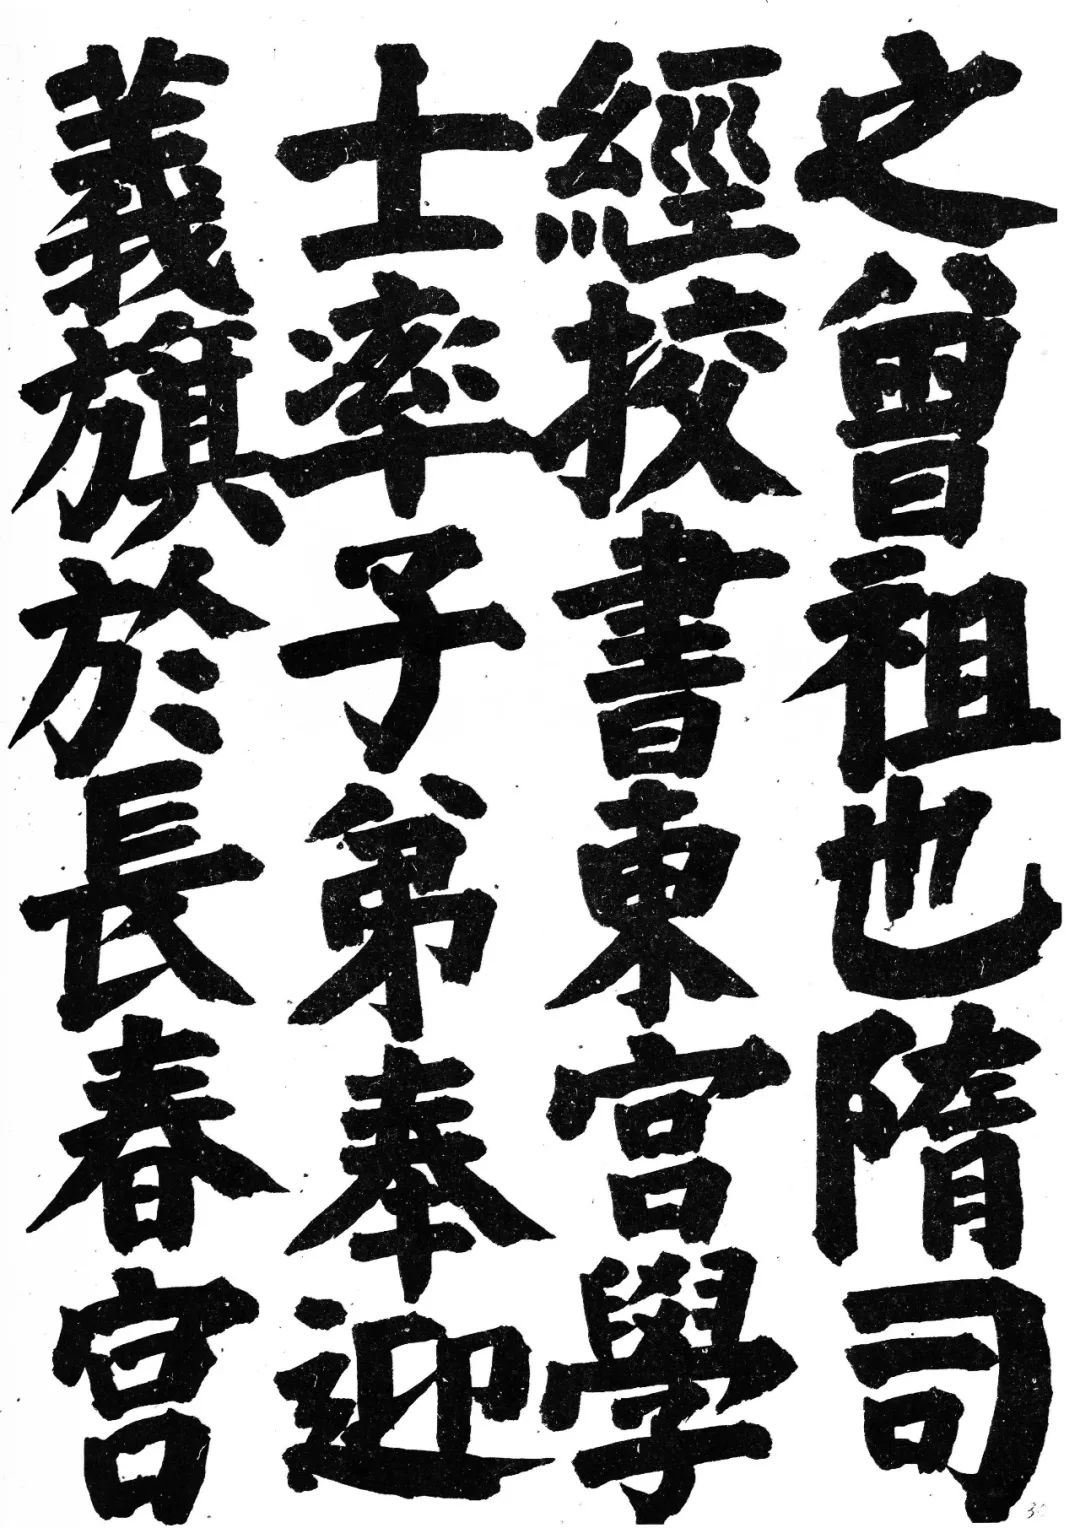 之曾祖也隋司
經挍書東宮學
士率子弟奉迎
義旗於長春宮